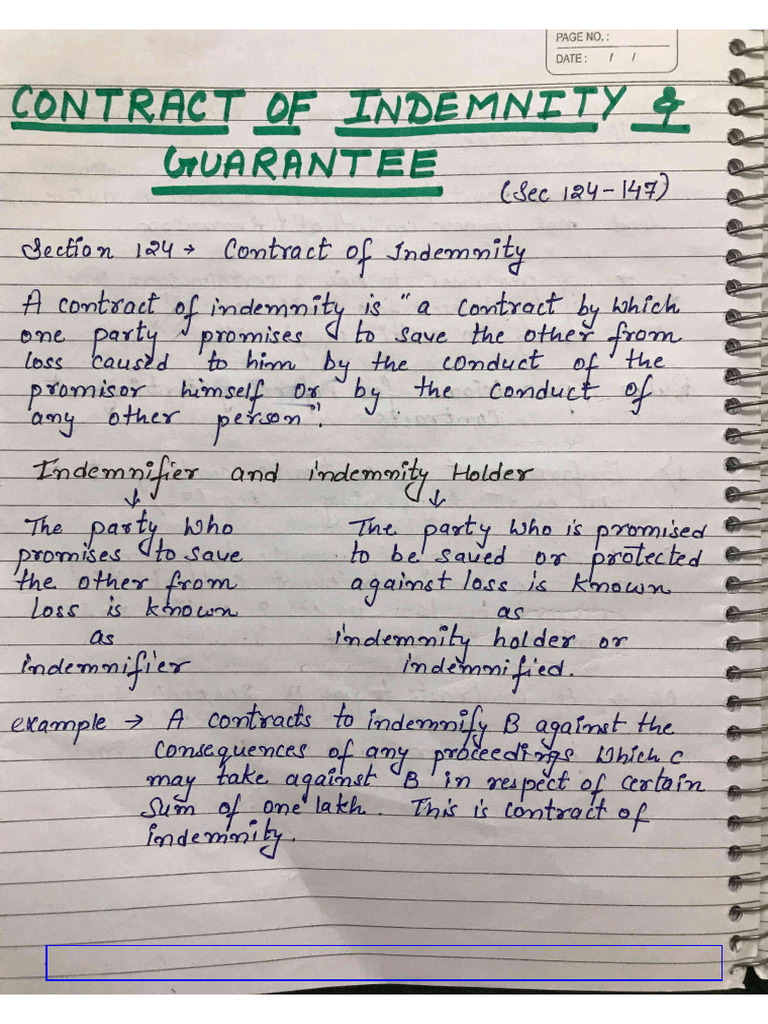 PAGE NO.:
DATE: / /
CONTRACT OF INDEMNITY &
GUARANTEE
(Sec 124-147)
Section 124 → Contract of Indemnity
A contract of indemnity is "a contract by which
one party promises to save the other from
loss caused to him by the conduct of the
promisor himself or by the conduct of
any other person".
Indemnifier and indemnity Holder
↓ ↓
The party who The party who is promised
promises to save to be saved or protected
the other from against loss is known
loss is known as
as indemnity holder or
indemnifier indemnified.
example → A contracts to indemnify B against the
consequences of any proceedings which c
may take against B in respect of certain
sum of one lakh. This is contract of
indemnity.